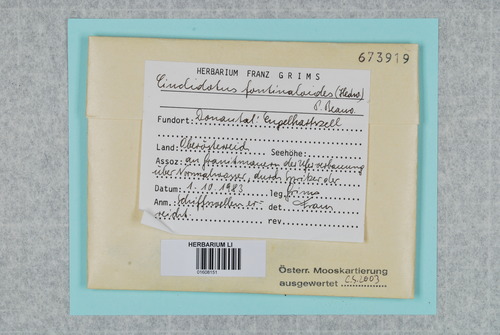 673919
HERBARIUM FRANZ GRIMS
Cinclidotus fontinaloides (Hedw.)
P. Beauv.
Fundort: Donautal: Engelhartszell
Land: Oberösterreich Seehöhe:
Assoz: an Granitmauern der Uferverbauung
über Normalwasser, durch
Datum: 1. 10. 1983 leg. Grims
Anm. Schiffswellen er- det. Franz
reicht. rev.
HERBARIUM LI
01608151
Österr. Mooskartierung
ausgewertet C.S. 2003